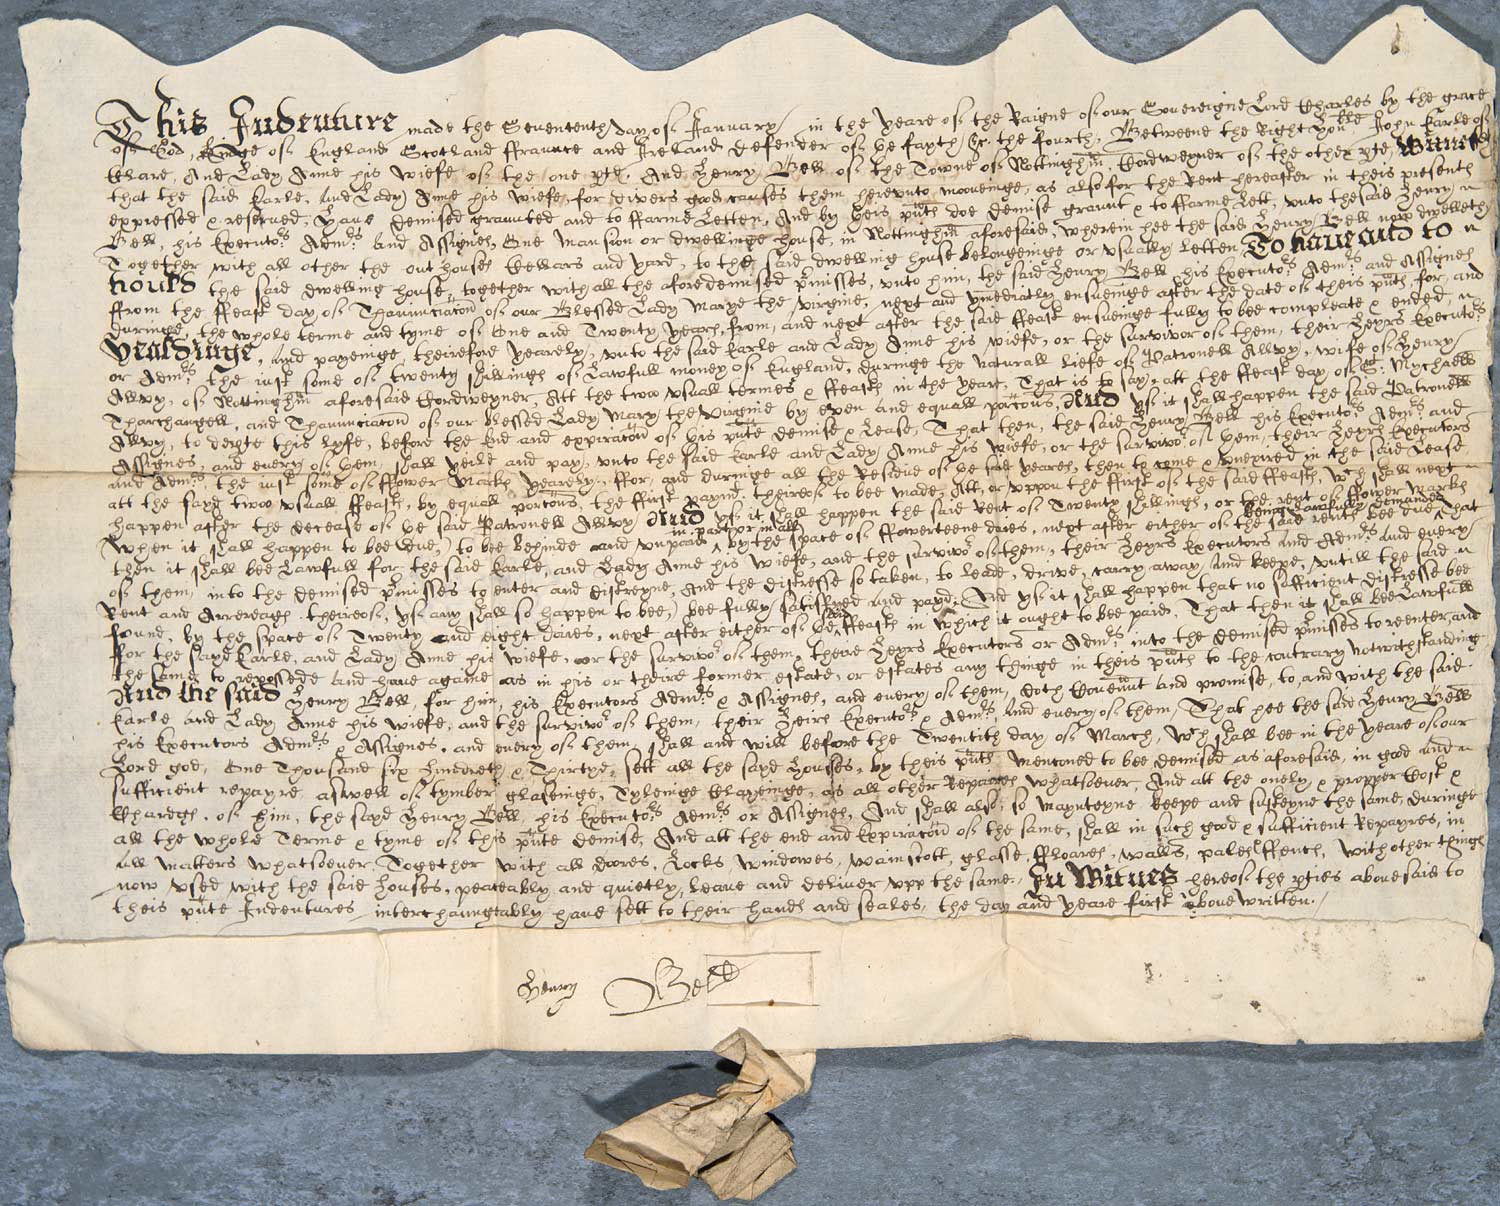 This Indenture made the Sevententh day of January in the yeare of the Raigne of our Sovereigne Lord Charles by the grace
of God, Kinge of England Scotland ffraunce and Ireland defender of ye fayth &c. the fourth, Betweene the Right hon:ble John Earle of
Clare, And Lady Anne his Wiefe of the one p̱te, And Henry Bell of the Towne of Nottinghm̄ Cordweyner of the other p̱te, Witnesseth
that the said Earle, And Lady Anne his Wiefe, for divers good causes them herevnto moveinge, as also for the Rent hereafter in theis presents
expressed & reserved, Have demised graunted and to ffarme Letten, And by theis p̄nts doe demise graunt & to ffarme Lett, vnto the said Henry
Bell, his Executo:rs Adm:rs And Assignes, One Mansion or dwellinge house, in Nottinghm̄ aforesaid, wherein hee the said Henry Bell now dwelleth,
Together with all other the out houses Cellars and yard, to the said dwelling house belongeinge or vsually letten To have and to
hould the said dwelling house, together with all the aforedemised p̄misses, vnto him, the said Henry Bell his Executo:rs Adm:rs and Assignes
ffrom the ffeast day of Thannunciac̄on of our Blessed Lady Marye the virgine, next and ymediatly ensueinge after the date of theis p̄nts, for, and
duringe, the whole terme and tyme of One and Twenty yeares, from, and next after the said ffeast ensueinge fully to bee compleate & ended,
Yealdinge, And payeinge, theirefore yearely, vnto the said Earle and Lady Anne his Wiefe, or the survivor of them, their heyrs Executo:rs
or Adm:rs the iust some of twenty shillings of Lawfull money of England, duringe the Naturall liefe of Patronell Allvy, wife of Henry
Allvy, of Nottinghm̄ aforesaid Cordweyner, Att the twoe vsuall termes & ffeasts in the yeare, That is to say, att the ffeast day of S:t Mychaell
Tharchangell, and Thannunciac̄on of our blessed Lady Mary the virgine by even and equall porc̄ons, And yf it shall happen the said Patronell
Allvy, to depte this lyfe, before the End and expirac̄on of this p̄nte demise & Lease, That then, the said Henry Bell his Executo:rs Adm:rs and
Assignes, and every of them, shall yeild and pay, vnto the said Earle and Lady Anne his Wiefe, or the survivo:r of them, their heyrs Executors
and Adm:rs, the iust some of ffower Marks yearely, ffor, and duringe all the Residue of ye said yeares, then to come & vnexpired in the said Lease
att the sayd twoo vsuall ffeasts, by equall porc̄ons, the ffirst paym:t theireof to bee made, Att, or vppon the ffirst of the said ffeasts, w:ch shall next
happen after the decease of ye said Patronell Allvy And yf it shall happen the said Rent of Twenty shillings, or the rent of ffower Marks
being Lawfully demanded
when it shall happen to bee due, to bee behinde and vnpaid in part or in all by the space of ffowerteene daies, next after either of the said rents bee due, That
then it shall bee Lawfull for the said Earle, and Lady Anne his Wiefe, and the survivo:r of them, their heyrs Executors And Adm:rs And every
of them, into the demised p̄misses to enter and distreyne, And the distresse so taken, to Leade, drive, carry away, And keepe, vntill the said
Rent and Arrerages theireof, yf any shall so happen to bee, bee fully satisfyed And payd; And yf it shall happen that no sufficient distresse bee
found, by the space of Twenty and eight daies, next after either of ye said ffeasts in which it ought to bee paid, That then it shall bee Lawfull
for the sayd Earle, and Lady Anne his wiefe, or the survivo:r of them, there heyrs Executors or Adm:rs into the demised p̄misses to reenter, and
the same to repossede And have againe as in his or theire former estate, or estates any thinge in theis p̄nts to the contrary notwithstanding
And the said Henry Bell, for him, his Executors Adm:rs & Assignes, and every of them, doth Coven̄nt and promise, to, and with the said
Earle and Lady Anne his Wiefe, and the survivo:r of them, their heirs Executo:rs & Adm:rs, And every of them, That hee the said Henry Bell
his Executors Adm:rs & Assignes, and every of them, shall and will before the Twentith day of March, w:ch shall bee in the yeare of our
Lord god, One Thousand six hundreth & Thirtye, sett all the sayd houses, by theis p̄nts menc̄oned to bee demised as aforesaid, in good and
sufficient repayre aswell of tymber, glaseinge, Tyleinge Claye­inge, as all other Repaires whatsoever, And att the onely & propper Cost &
Chardges, of him, the sayd Henry Bell, his Executo:rs Adm:rs or Assignes, And shall also, so Maynteyne keepe and susteyne the same, duringe
all the whole Terme & tyme of this p̄nte demise, And att the end and Expirac̄on of the same, shall in such good & sufficient Repayres, in
all matters whatsoever, Together with all doores, Locks, windowes, wainscott, glasse, ffloares, walls, pales ffences, with other things
now vsed with the said houses, peaceably and quietly, leave and deliver vpp the same, In Witnes hereof the p̱ties abovesaid to
theis p̄nte Indentures interchaungeably have sett to their hands and seales, the day and yeare first above written.
Henry Bell